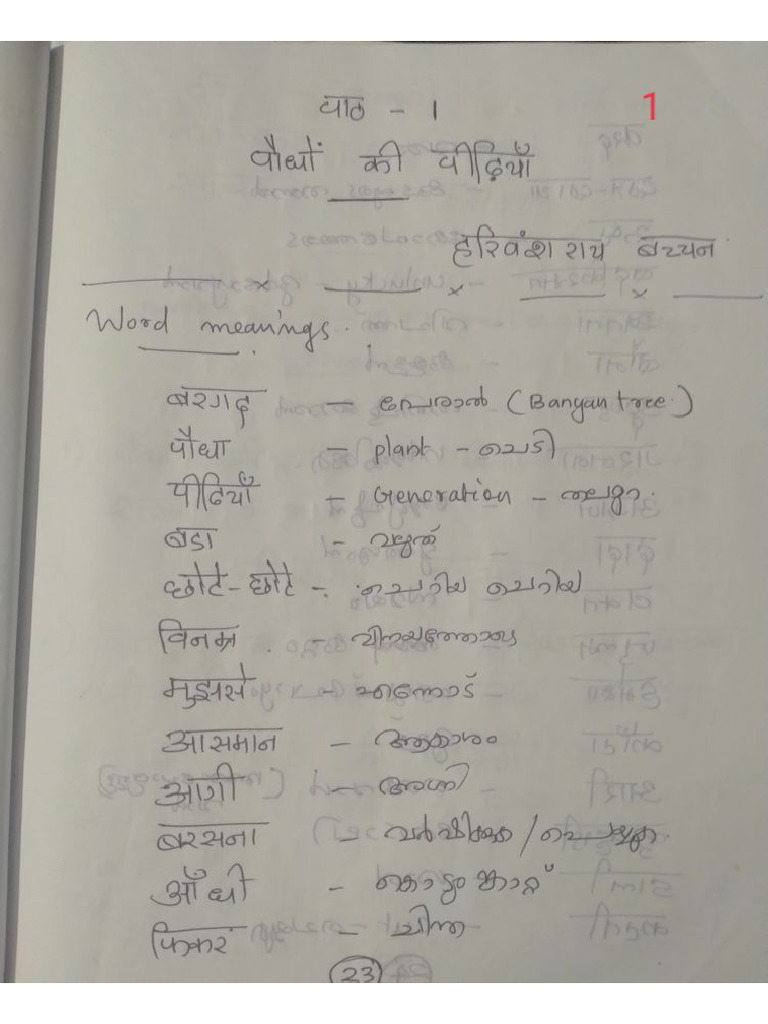 पाठ - 1
1
पौधों की पीढ़ियाँ
हरिवंश राय बच्चन
Word meanings.
बरगद - പേരാൽ (Banyan tree)
पौधा - plant - ചെടി
पीढियाँ - Generation - തലമുറ
बडा - വലുത്
छोटे-छोटे - ചെറിയ ചെറിയ
विनम्र - വിനയത്തോടെ
मुझसे - എന്നോട്
आसमान - ആകാശം
आगी - അഗ്നി
बरसना - വർഷിക്കുക / പെയ്യുക
आँधी - കൊടുംകാറ്റ്
फिकर - ചിന്ത
23